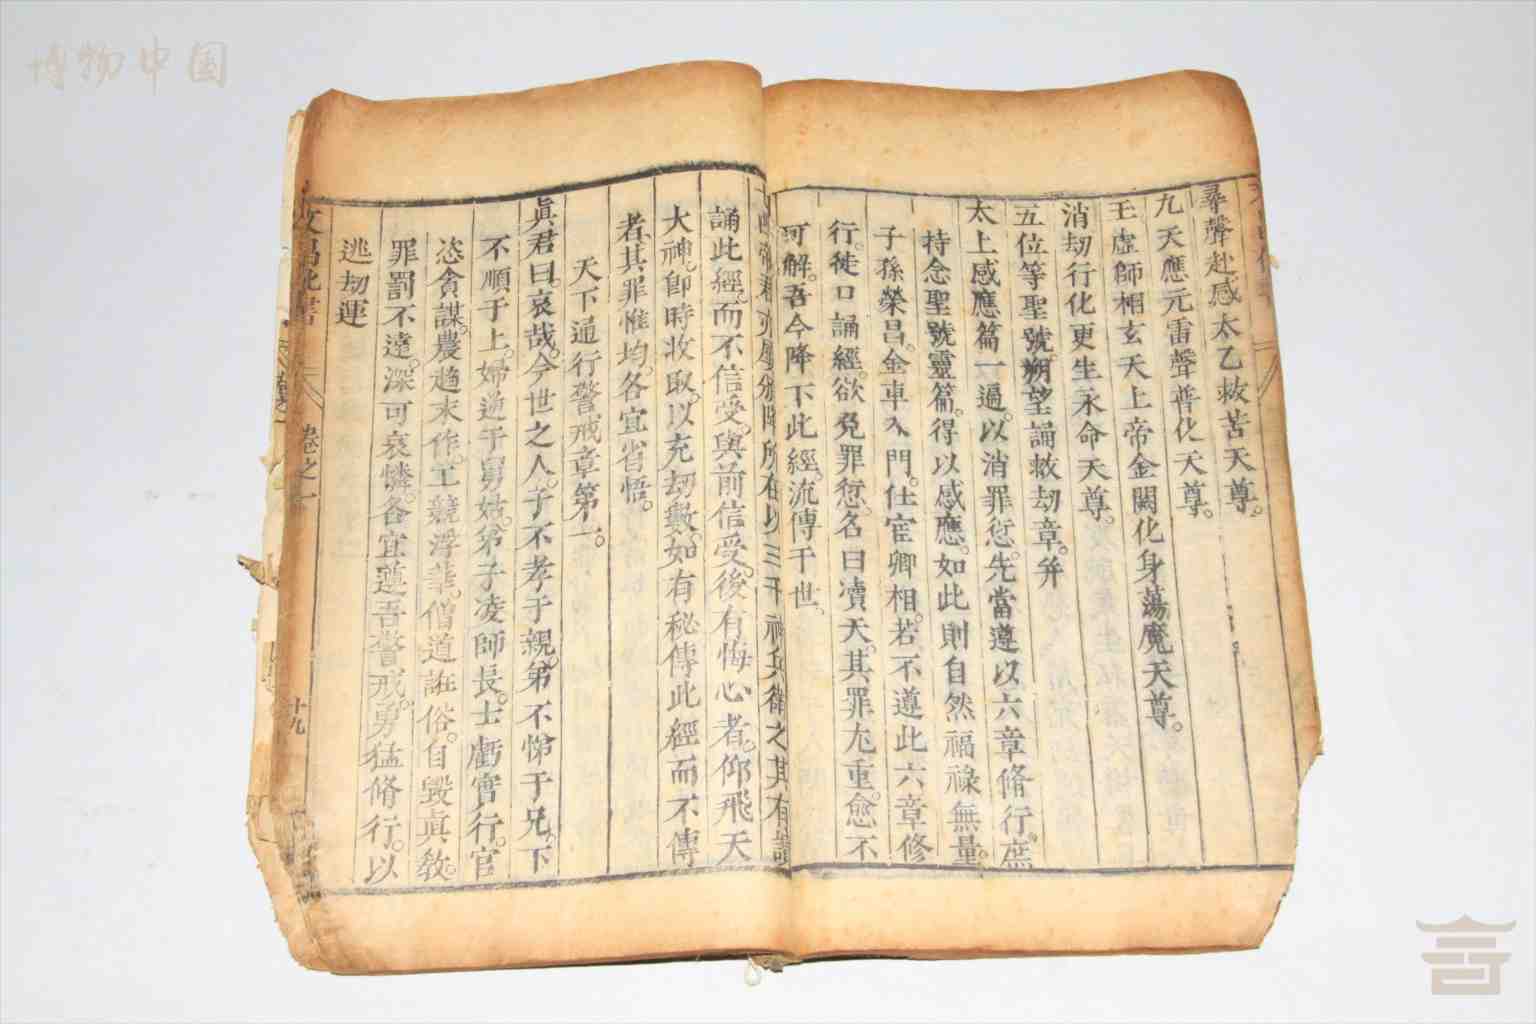 博物中国
尋聲赴感太乙救苦天尊。
九天應元雷聲普化天尊。
玉虛師相玄天上帝金闕化身蕩魔天尊。
消劫行化更生永命天尊。
五位等聖號。朔望誦救劫章。并
太上感應篇一遍。以消罪愆。先當遵以六章脩行。庶
持念聖號靈篇。得以感應。如此則自然福祿無量。
子孫榮昌。金車入門。仕宦卿相。若不遵此六章修
行。徒口誦經。欲免罪愆。名曰瀆天。其罪尤重。愈不
可解。吾今降下此經。流傳于世、
所在以三千神兵衛之其有謗
誦此經。而不信受。與前信受。後有悔心者。仰飛天
大神。卽時收取。以充劫數。如有秘傳此經而不傳
者。其罪惟均。各宜省悟。
天下通行警戒章第一。
眞君曰。哀哉。今世之人。子不孝于親。弟不悌于兄。下
不順于上。婦逆于舅姑。弟子凌師長。士虧實行。官
恣貪謀。農趨末作。工競浮華。僧道誑俗。自毀眞教。
罪罰不遠。深可哀憐。各宜遵吾警戒。勇猛脩行。以
逃劫運
文昌化書
卷之一
十九